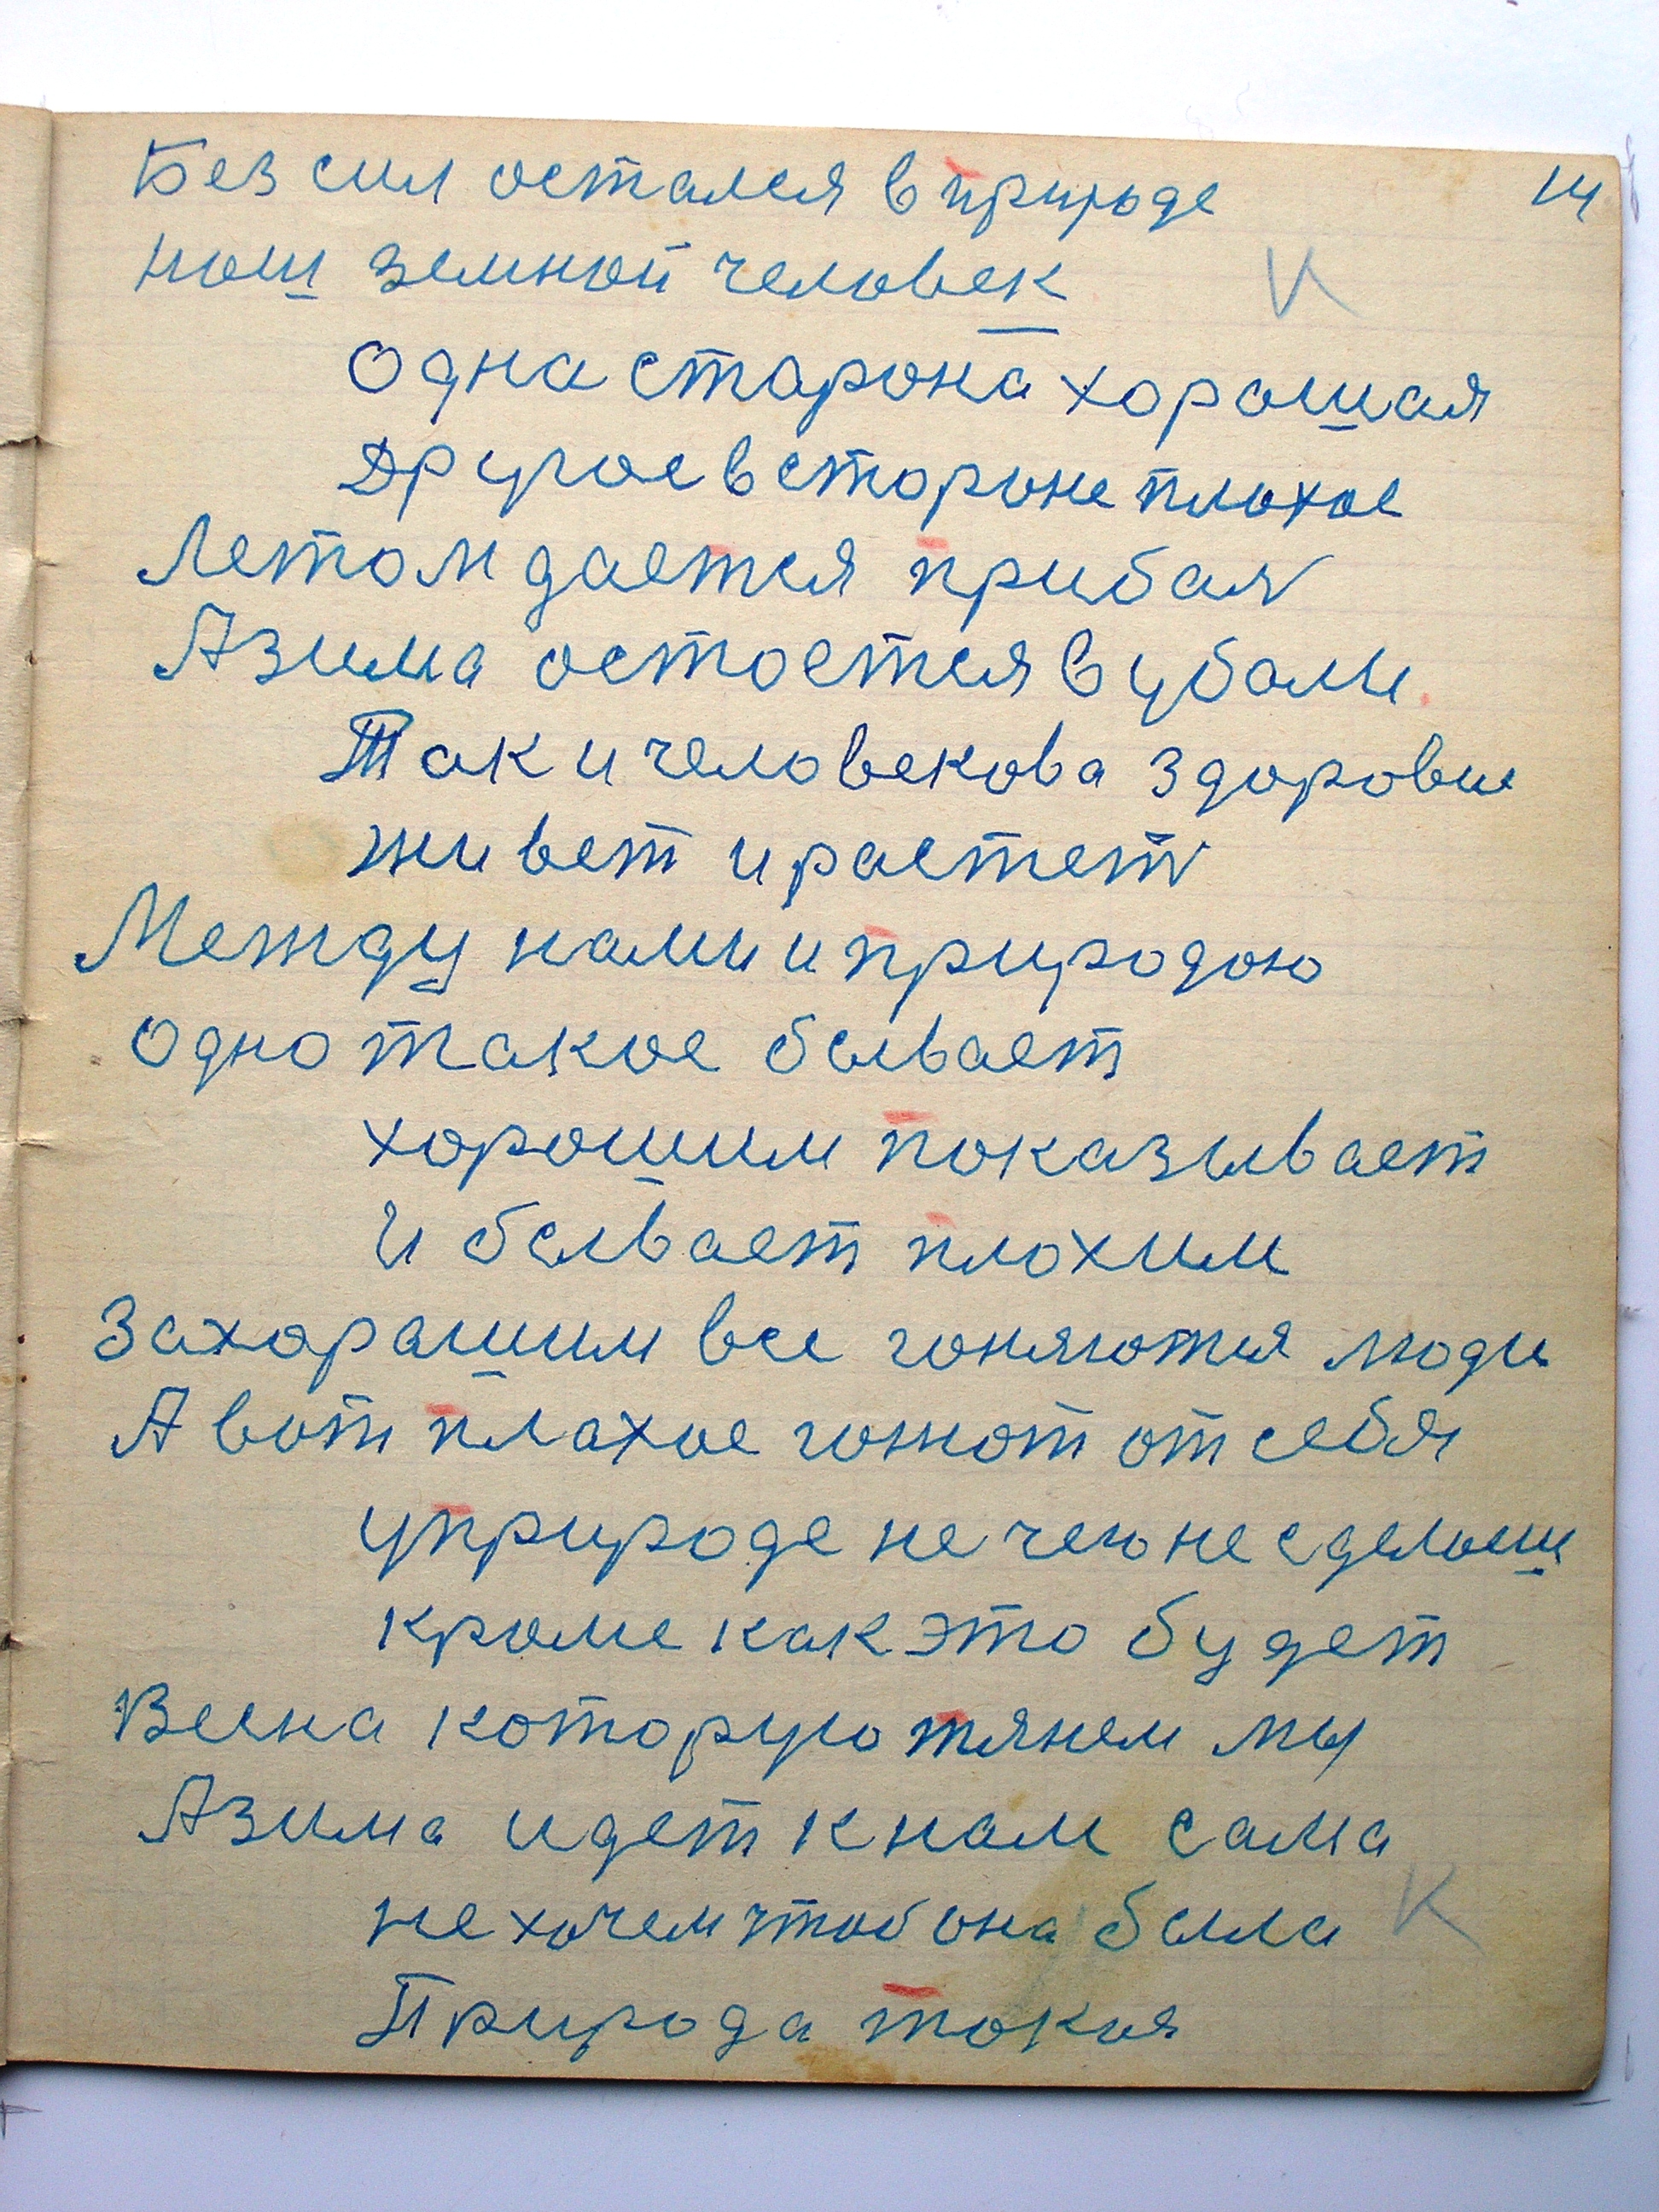 Без сил остался в природе 14
наш земной человек
Одна старона хорошая
Другое в стороне плохое
Летом дается прибал
А зима остается в убалы
Так и человекова здоровие
живет и растет
Между нами и природою
Одно такое бывает
хорошим показывает
И бывает плохим
За хорашим все гоняются люди
А вот плахое гонют от себя
у природе не чего не сделаеш
кроме как это будет
Весна которую тянем мы
А зима идет к нам сама
не хочем чтоб она была
Природа такая